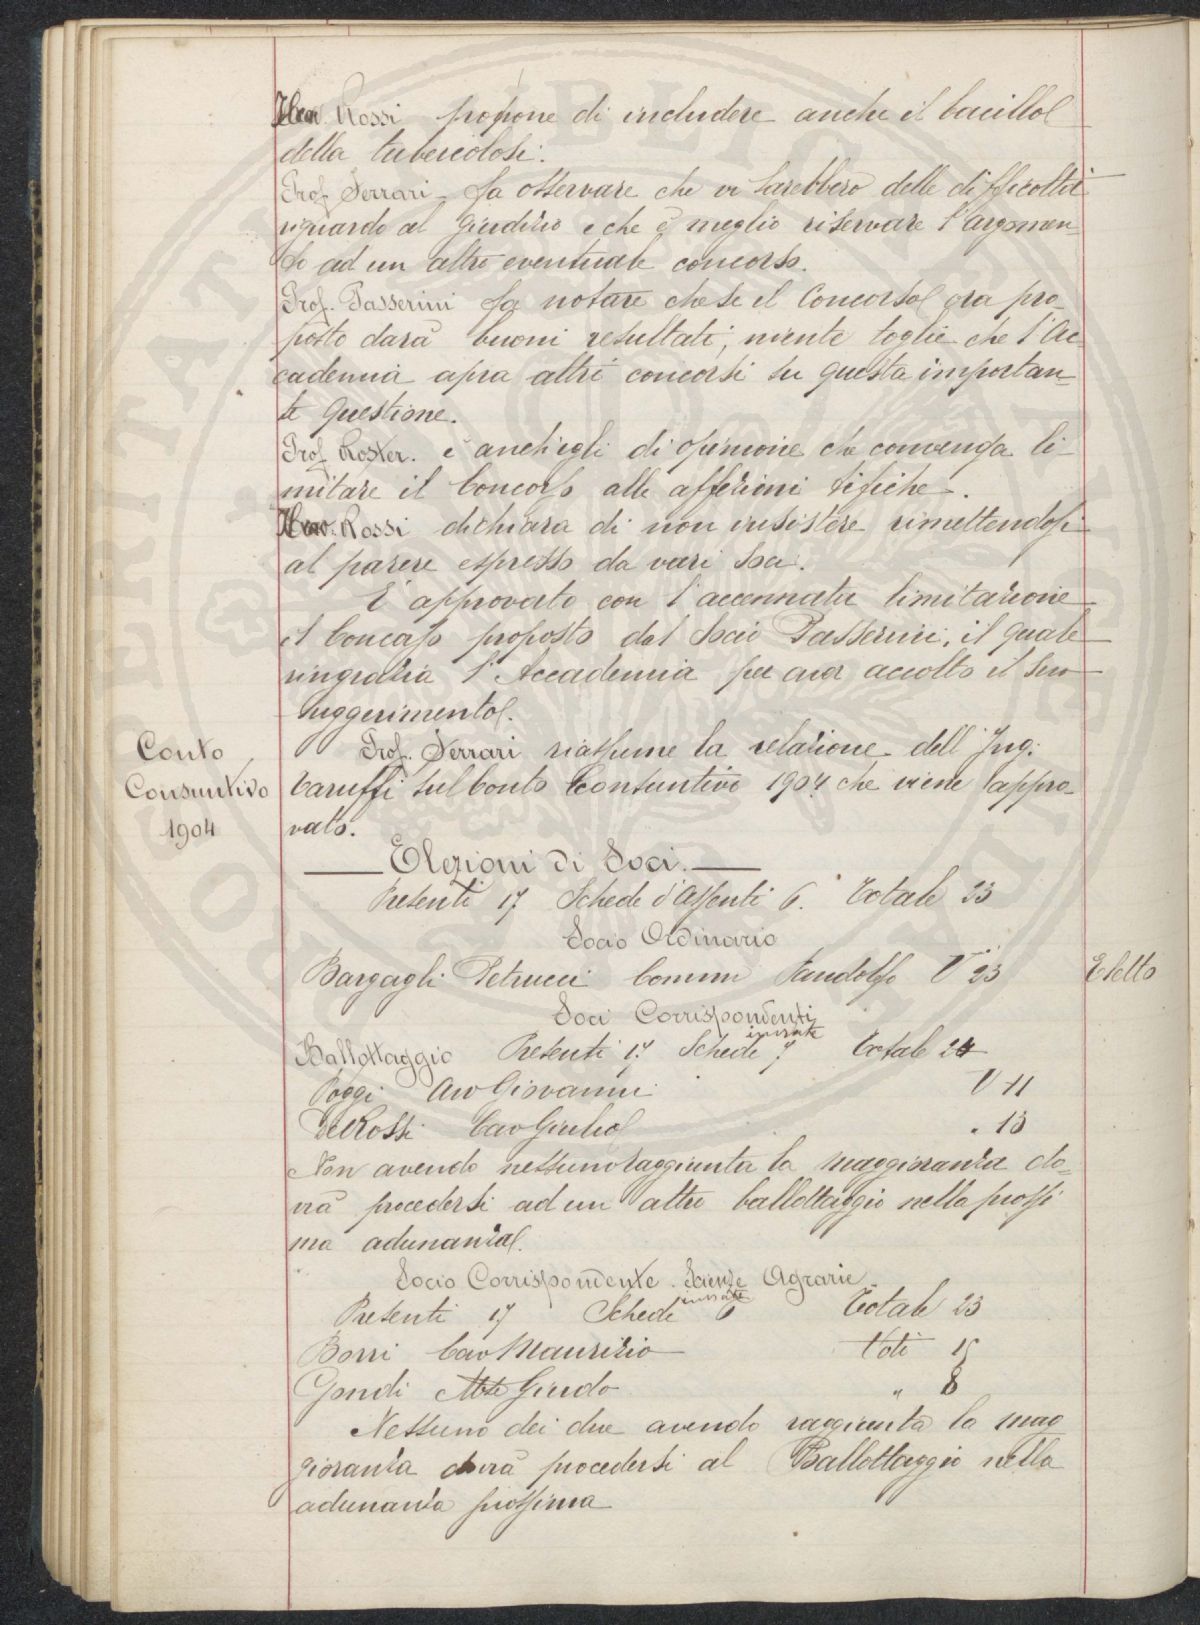 Rossi propone di includere anche il bacillo
della tubercolosi.
Prof. Ferrari fa osservare che vi sarebbero delle difficoltà
riguardo al giudizio e che è meglio riservare l'argomen-
to ad un altro eventuale concorso.
Prof. Passerini fa notare che se il Concorso ora pro-
posto darà buoni resultati, niente toglie che l'Ac-
cademia apra altri concorsi su questa importan-
te questione.
Prof. Roster. è anch'egli di opinione che convenga li-
mitare il Concorso alle affezioni tifiche.
Rossi dichiara di non insistere rimettendosi
al parere espresso da vari Soci.
È approvato con l'accennata limitazione
il Concorso proposto dal Socio Passerini, il quale
ringrazia l'Accademia per aver accolto il suo
suggerimento.
Conto
Consuntivo
1904
Prof. Ferrari riassume la relazione dell'Ing.
Caruffi sul Conto Consuntivo 1904 che viene appro-
vato.
Elezioni di Soci.
Presenti 17 Schede d'assenti 6. Totale 23
Socio Ordinario
Bargagli Petrucci Comm Pandolfo V 23 Eletto
Soci Corrispondenti
Ballottaggio Presenti 17 Schede inviate 7 Totale 24
Poggi Avv Giovanni V 11
Del Rossi Cav Giulio " 13
Non avendo nessuno raggiunta la maggioranza do-
vrà procedersi ad un altro ballottaggio nella prossi
ma adunanza.
Socio Corrispondente. Scienze Agrarie
Presenti 17 Schede inviate 6 Totale 23
Borri Cav Maurizio Voti 15
Gondi Mse Giudo " 8
Nessuno dei due avendo raggiunta la mag
gioranza dovrà procedersi al Ballottaggio nella
adunanza prossima